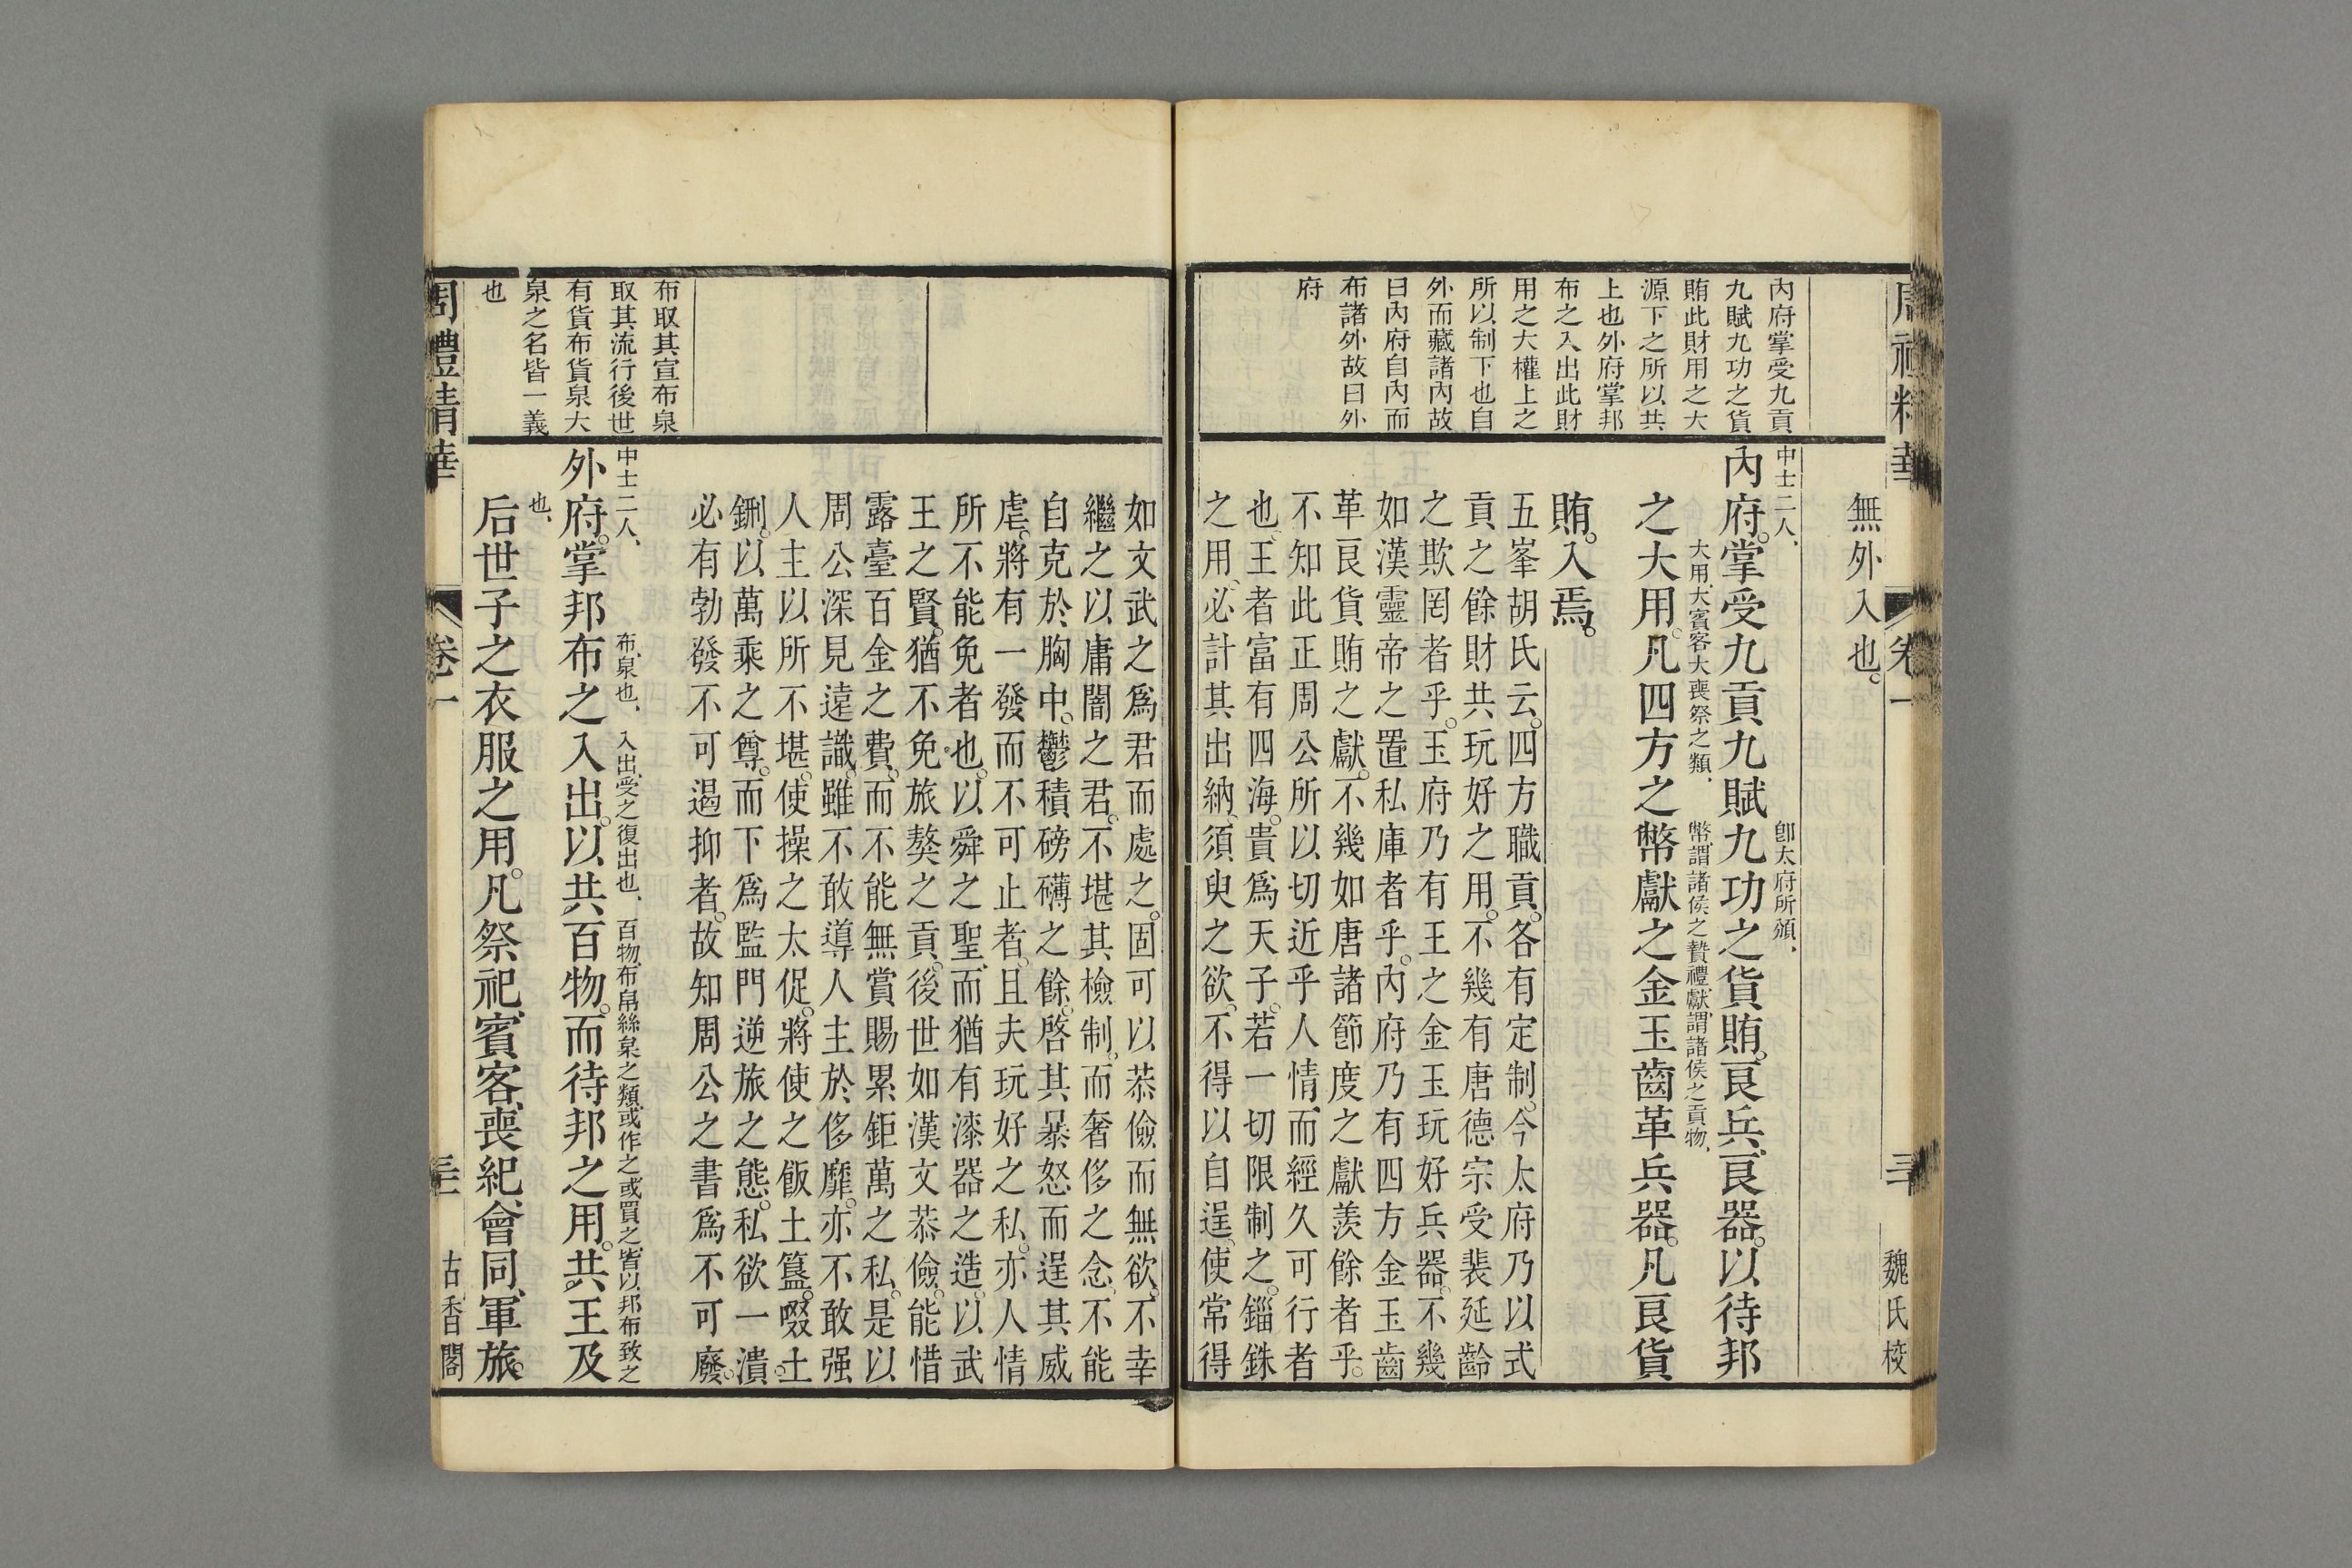 無外入也。
內府掌受九貢
九賦九功之貨
賄此財用之大
源下之所以共
上也外府掌邦
布之入出此財
用之大權上之
所以制下也自
外而藏諸內故
曰內府自內而
布諸外故曰外
府
中士二人、
卽太府所頒、
內府。掌受九貢九賦九功之貨賄。良兵、良器。以待邦
大用、大賓客大喪祭之類、
幣、謂諸侯之贄禮、獻、謂諸侯之貢物、
之大用。凡四方之幣獻之金玉齒革兵器。凡良貨
賄。入焉。
五峯胡氏云。四方職貢。各有定制。今太府乃以式
貢之餘財共玩好之用。不幾有唐德宗受裴延齡
之欺罔者乎。玉府乃有王之金玉玩好兵器。不幾
如漢靈帝之置私庫者乎。內府乃有四方金玉齒
革良貨賄之獻。不幾如唐諸節度之獻羨餘者乎。
不知此正周公所以切近乎人情、而經久可行者
也。王者富有四海。貴爲天子。若一切限制之。錙銖
之用、必計其出納、須臾之欲。不得以自逞、使常得
如文武之爲君而處之。固可以恭儉而無欲、不幸
繼之以庸闇之君。不堪其檢制、而奢侈之念、不能
自克於胸中。鬱積磅礴之餘。啓其暴怒而逞其威
虐、將有一發而不可止者。且夫玩好之私。亦人情
所不能免者也。以舜之聖、而猶有漆器之造。以武
王之賢。猶不免旅獒之貢。後世如漢文恭儉。能惜
露臺百金之費。而不能無賞賜累鉅萬之私。是以
周公深見遠識。雖不敢導人主於侈靡。亦不敢强
人主以所不堪。使操之太促。將使之飯土簋。啜土
鉶。以萬乘之尊。而下爲監門逆旅之態。私欲一潰。
必有勃發不可遏抑者。故知周公之書爲不可廢。
布取其宣布泉
取其流行後世
有貨布貨泉大
泉之名皆一義
也
中士二人、
布、泉也、
入出、受之復出也、
百物、布帛絲枲之類、或作之或買之、皆以邦布致之
也、
外府。掌邦布之入出。以共百物。而待邦之用。共王及
后世子之衣服之用。凡祭祀、賓客、喪紀、會同、軍旅。
周禮精華
卷一
三十
魏氏校
周禮精華
卷一
古香閣